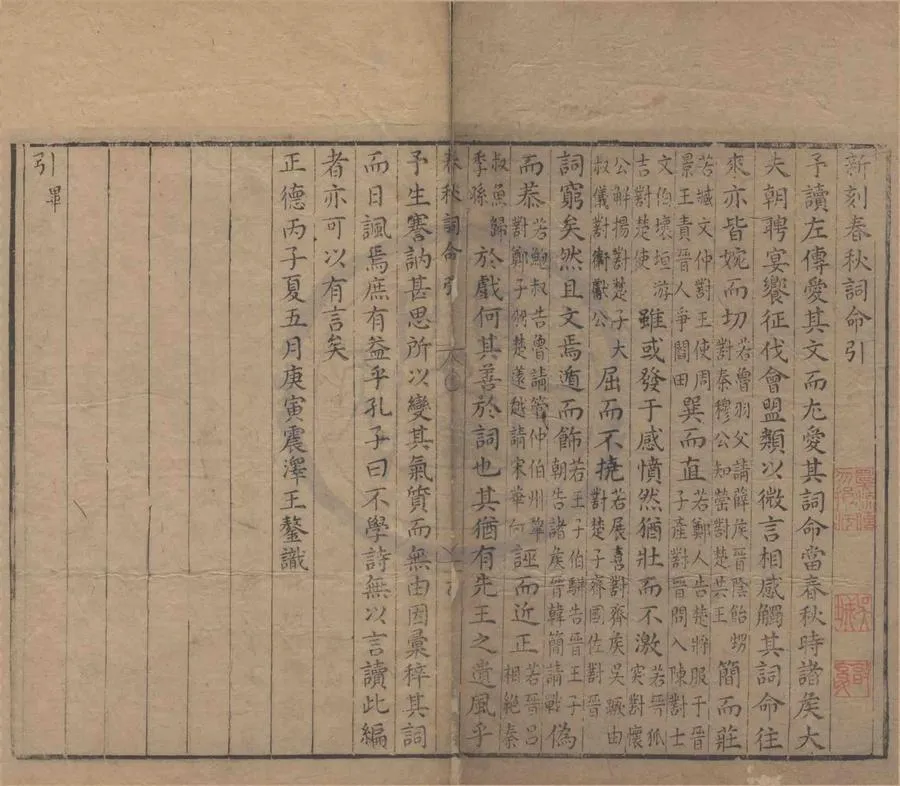 新刻春秋詞命引
予讀左傳愛其文而尤愛其詞命當春秋時諸矦大
夫朝聘宴饗征伐會盟類以微言相感觸其詞命往
來亦皆婉而切若魯羽父請薛矦晉陰飴甥對秦穆公知罃對楚共王簡而莊
若臧文仲對王使周景王責晉人爭閻田巽而直若鄭人告楚將服于晉子產對晉問入陳對士
文伯壞垣游吉對楚使雖或發于感憤然猶壯而不激若晉狐突對懷
公解揚對楚子大叔儀對衛獻公屈而不撓若展喜對齊矦吳蹶由對楚子齊國佐對晉
詞窮矣然且文焉遁而飾若王子伯駢告晉王子朝告諸矦晉韓簡請戰偽
而恭若鮑叔告魯請管仲伯州犂對鄭子羽楚薳越請宋華向誣而近正若晉呂相絕秦
叔魚歸季孫於戲何其善於詞也其猶有先王之遺風乎
春秋詞命 引
予生謇訥甚思所以變其氣質而無由因彙稡其詞
而日諷焉庶有益乎孔子曰不學詩無以言讀此編
者亦可以有言矣
正德丙子夏五月庚寅震澤王鏊識
引畢